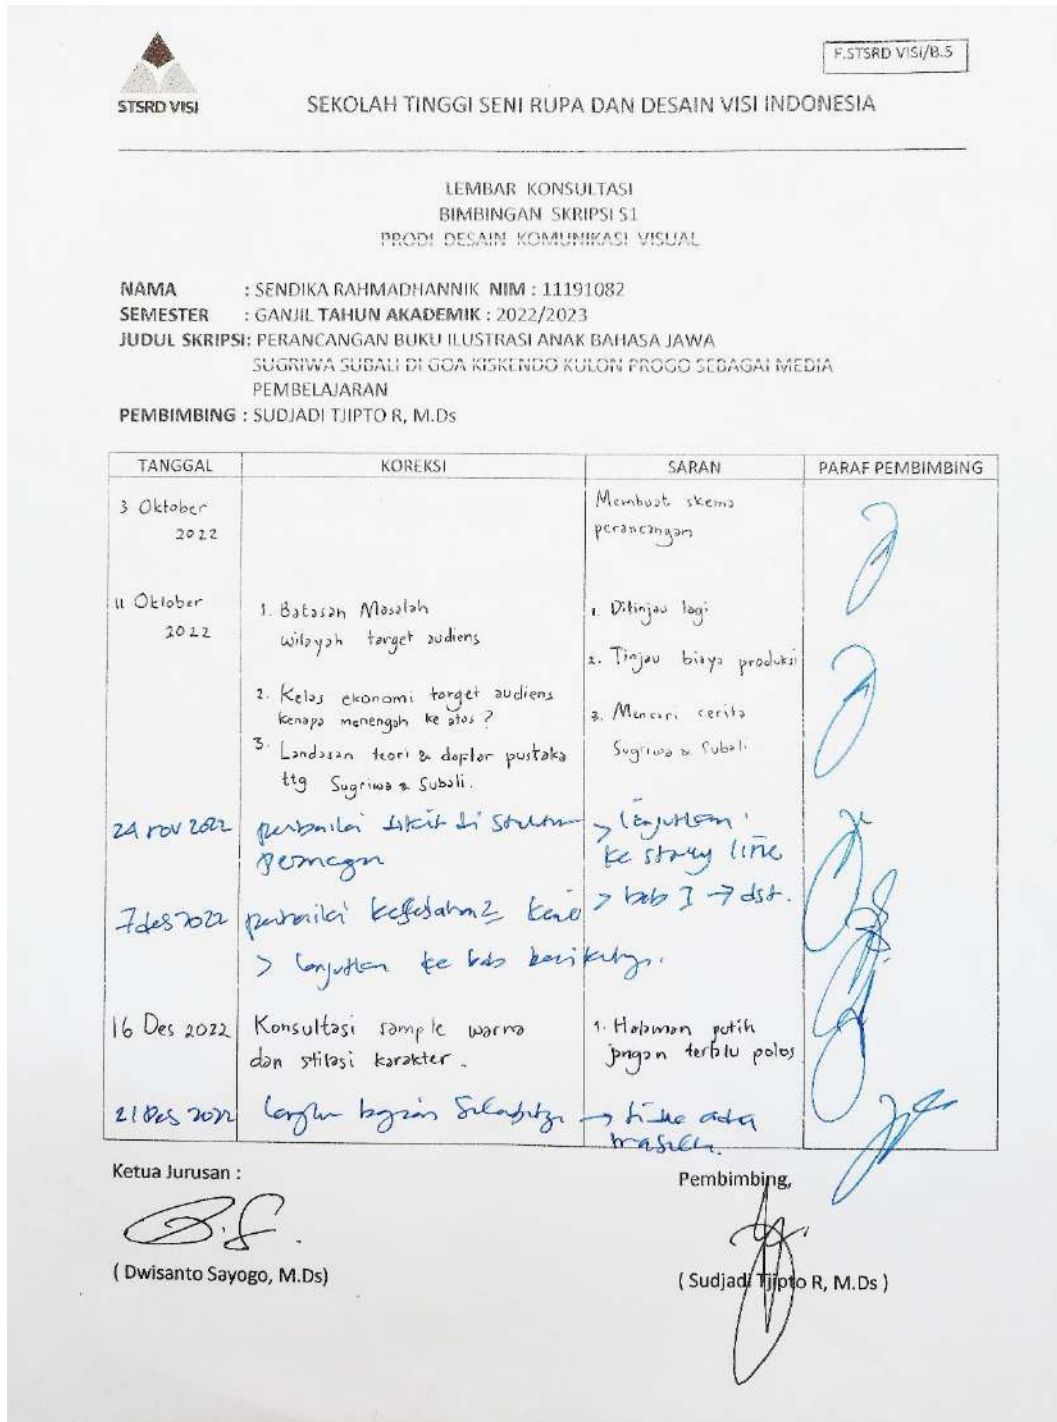 F.STSRD VISI/B.5
STSRD VISI
SEKOLAH TINGGI SENI RUPA DAN DESAIN VISI INDONESIA
LEMBAR KONSULTASI
BIMBINGAN SKRIPSI S1
PRODI DESAIN KOMUNIKASI VISUAL
NAMA : SENDIKA RAHMADHANNIK NIM : 11191082
SEMESTER : GANJIL TAHUN AKADEMIK : 2022/2023
JUDUL SKRIPSI: PERANCANGAN BUKU ILUSTRASI ANAK BAHASA JAWA
SUGRIWA SUBALI DI GOA KISKENDO KULON PROGO SEBAGAI MEDIA
PEMBELAJARAN
PEMBIMBING : SUDJADI TJIPTO R, M.Ds
TANGGAL KOREKSI SARAN PARAF PEMBIMBING
3 Oktober
2022
Membuat skema
perancangan
11 Oktober
2022
1. Batasan Masalah
wilayah target audiens
2. Kelas ekonomi target audiens
kenapa menengah ke atas ?
3. Landasan teori & daftar pustaka
ttg Sugriwa & Subali.
1. Ditinjau lagi
2. Tinjau biaya produksi
3. Mencari cerita
Sugriwa & Subali
24 nov 2022
di
ke story line
7 des 2022
> bab I → dst.
> lanjutkan ke bab
16 Des 2022
Konsultasi sample warna
dan stilasi karakter.
1. Halaman putih
jangan terlalu polos
21 Des 2022
→ ada
Ketua Jurusan :
(Dwisanto Sayogo, M.Ds)
Pembimbing,
( Sudjadi Tjipto R, M.Ds )